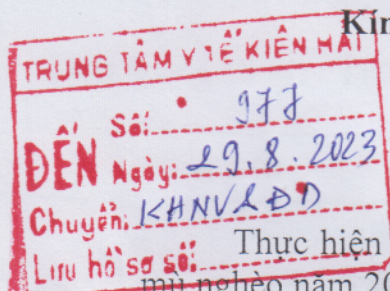 Kín
TRUNG TÂM Y TẾ KIÊN HẢI
ĐẾN
Số: 977
Ngày: 29.8.2023
Chuyển: KHNV&ĐD
Lưu hồ sơ số:
Thực hiện
mù nghèo năm 20